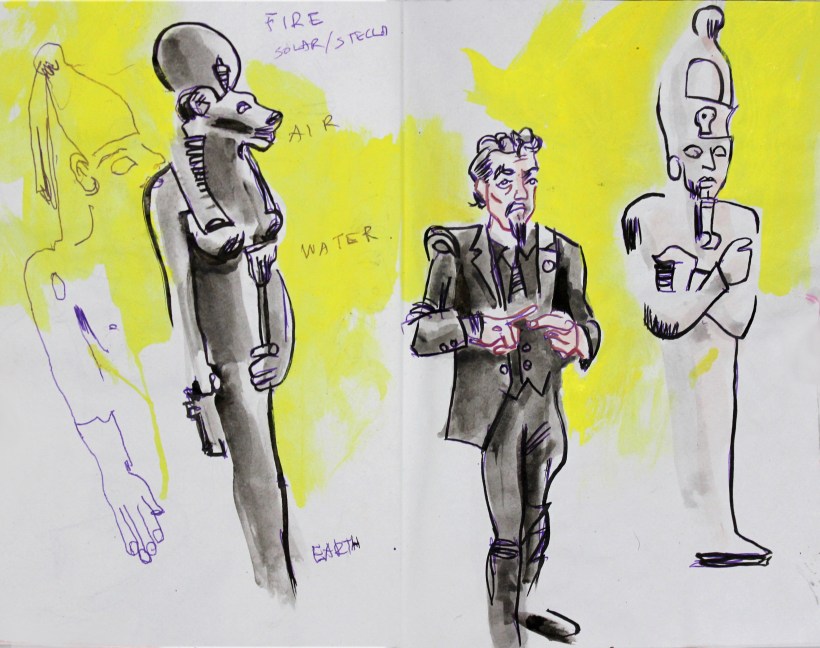 FIRE
SOLAR/STELLA
AIR
WATER
EARTH